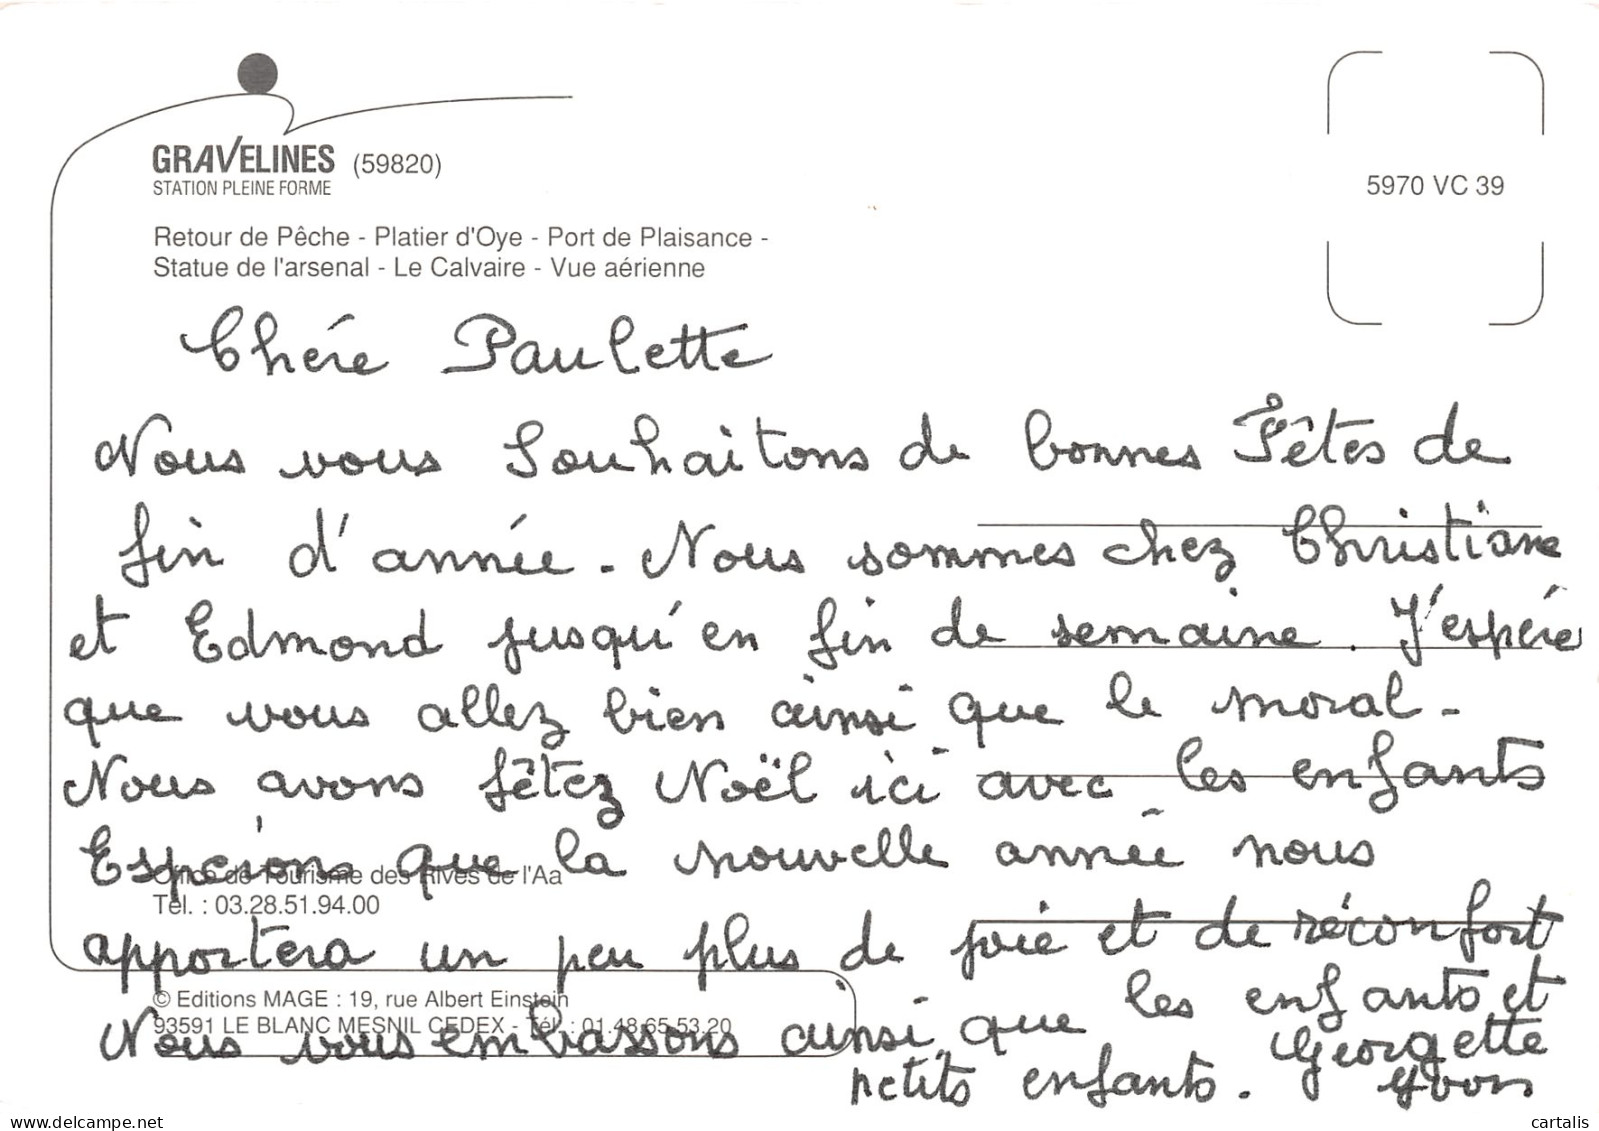 GRAVELINES (59820)
STATION PLEINE FORME
5970 VC 39
Retour de Pêche - Platier d'Oye - Port de Plaisance -
Statue de l'arsenal - Le Calvaire - Vue aérienne
Chére Paulette
Nous vous Souhaitons de bonnes Fêtes de
fin d'année. Nous sommes chez Christiane
et Edmond jusqu'en fin de semaine. J'espére
que vous allez bien ainsi que le moral.
Nous avons fêtez Noël ici avec les enfants
Espérons que la nouvelle année nous
Office de Tourisme des Rives de l'Aa
Tél. : 03.28.51.94.00
apportera un peu plus de joie et de réconfort
© Editions MAGE : 19, rue Albert Einstein
93591 LE BLANC MESNIL CEDEX - Tél. : 01.48.65.53.20
Nous vous embrassons ainsi que les enfants et
petits enfants. Georgette
Yvon
cartalis